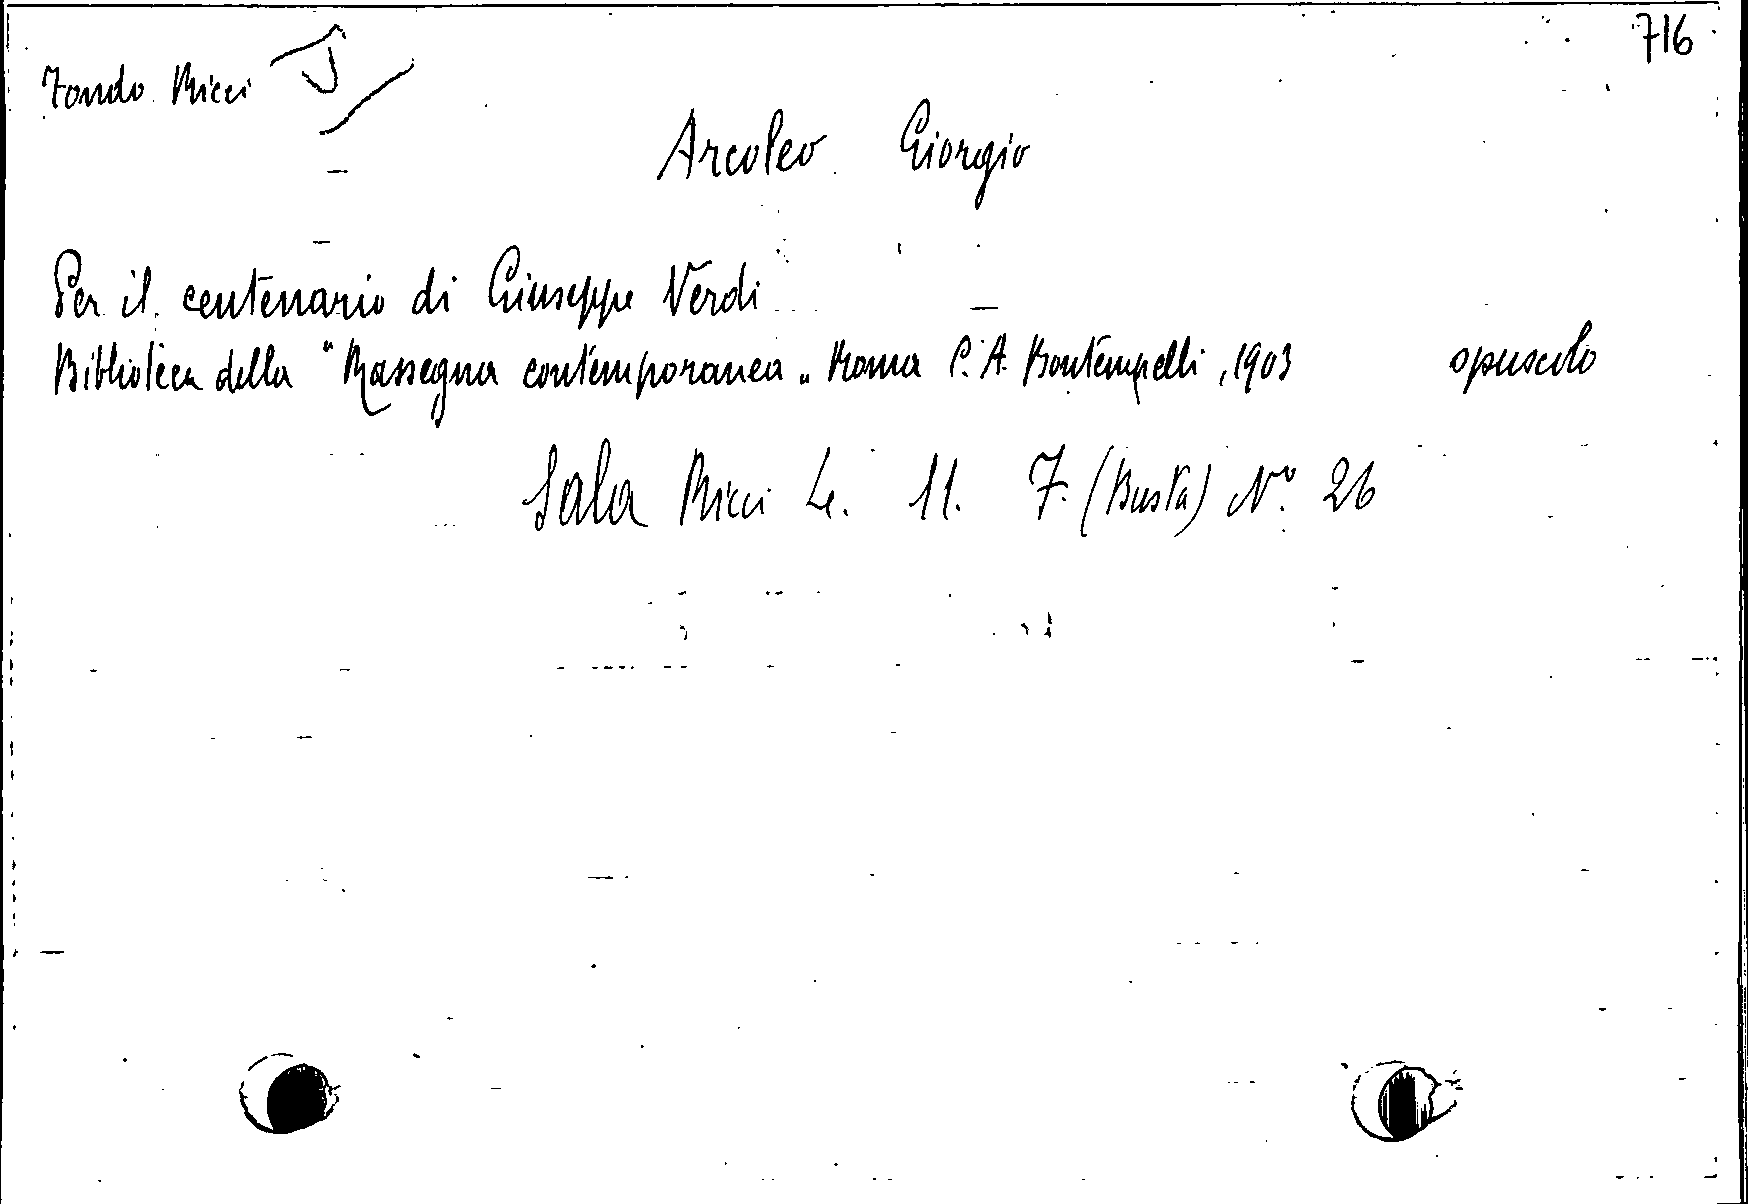 716
Fondo Ricci
Arcoleo Giorgio
Per il centenario di Giuseppe Verdi
Biblioteca della "Rassegna contemporanea" Roma C. A. Bontempelli, 1903 opuscolo
Sala Ricci Le. 11. 7. (Busta) N° 26